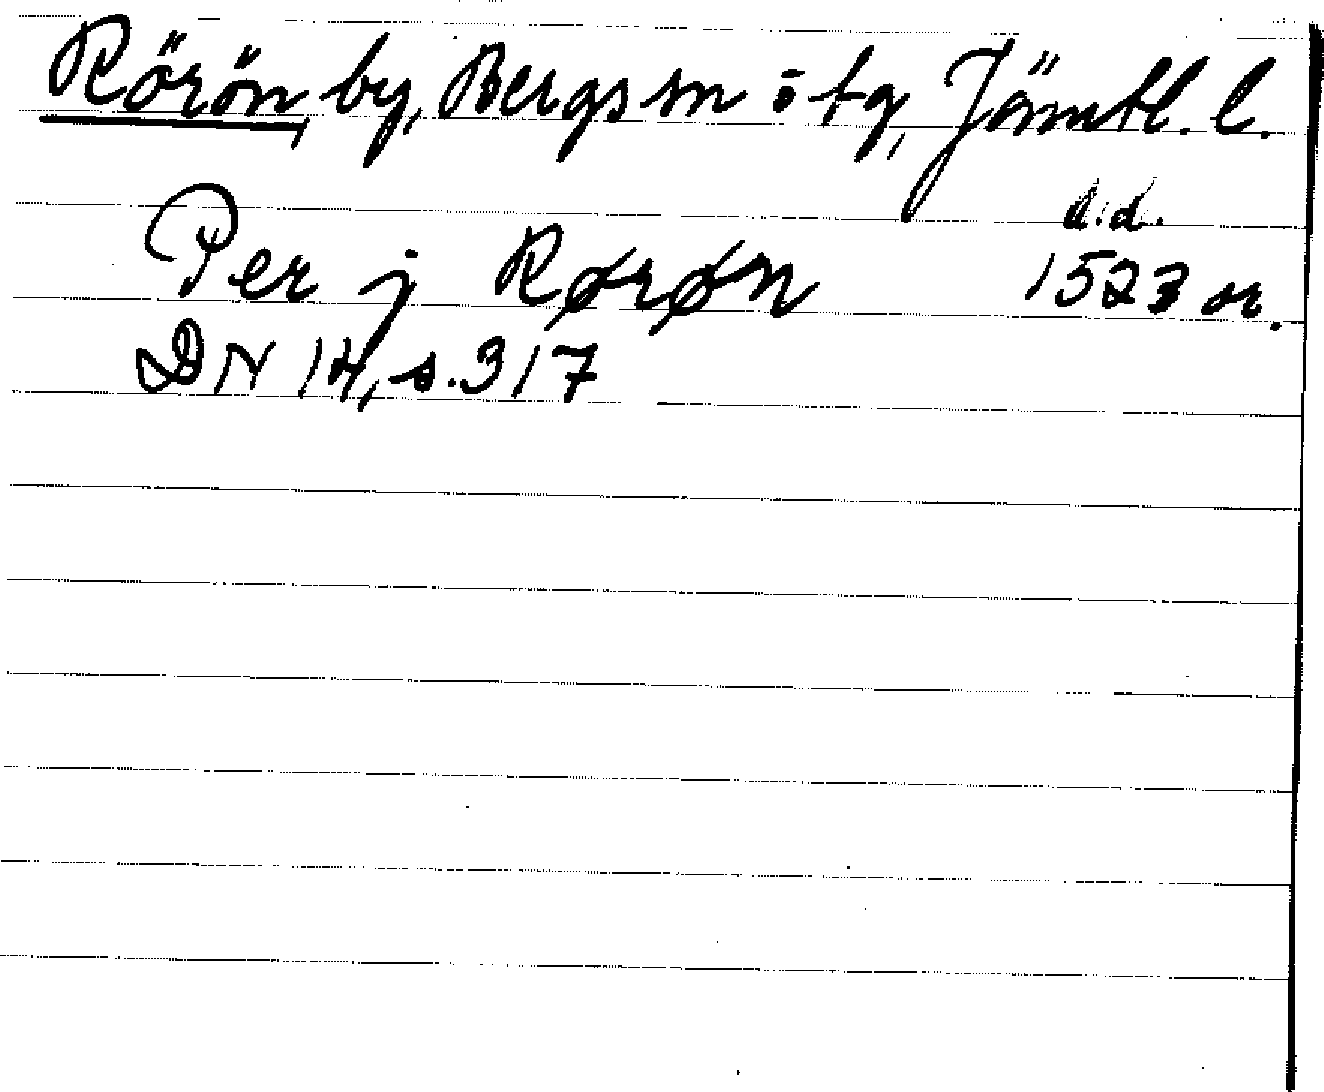 Rörön, by, Bergs sn ö tg, Jämtl. l.
u.d.
Per j Rørøn 1523 or.
DN 14, s. 317